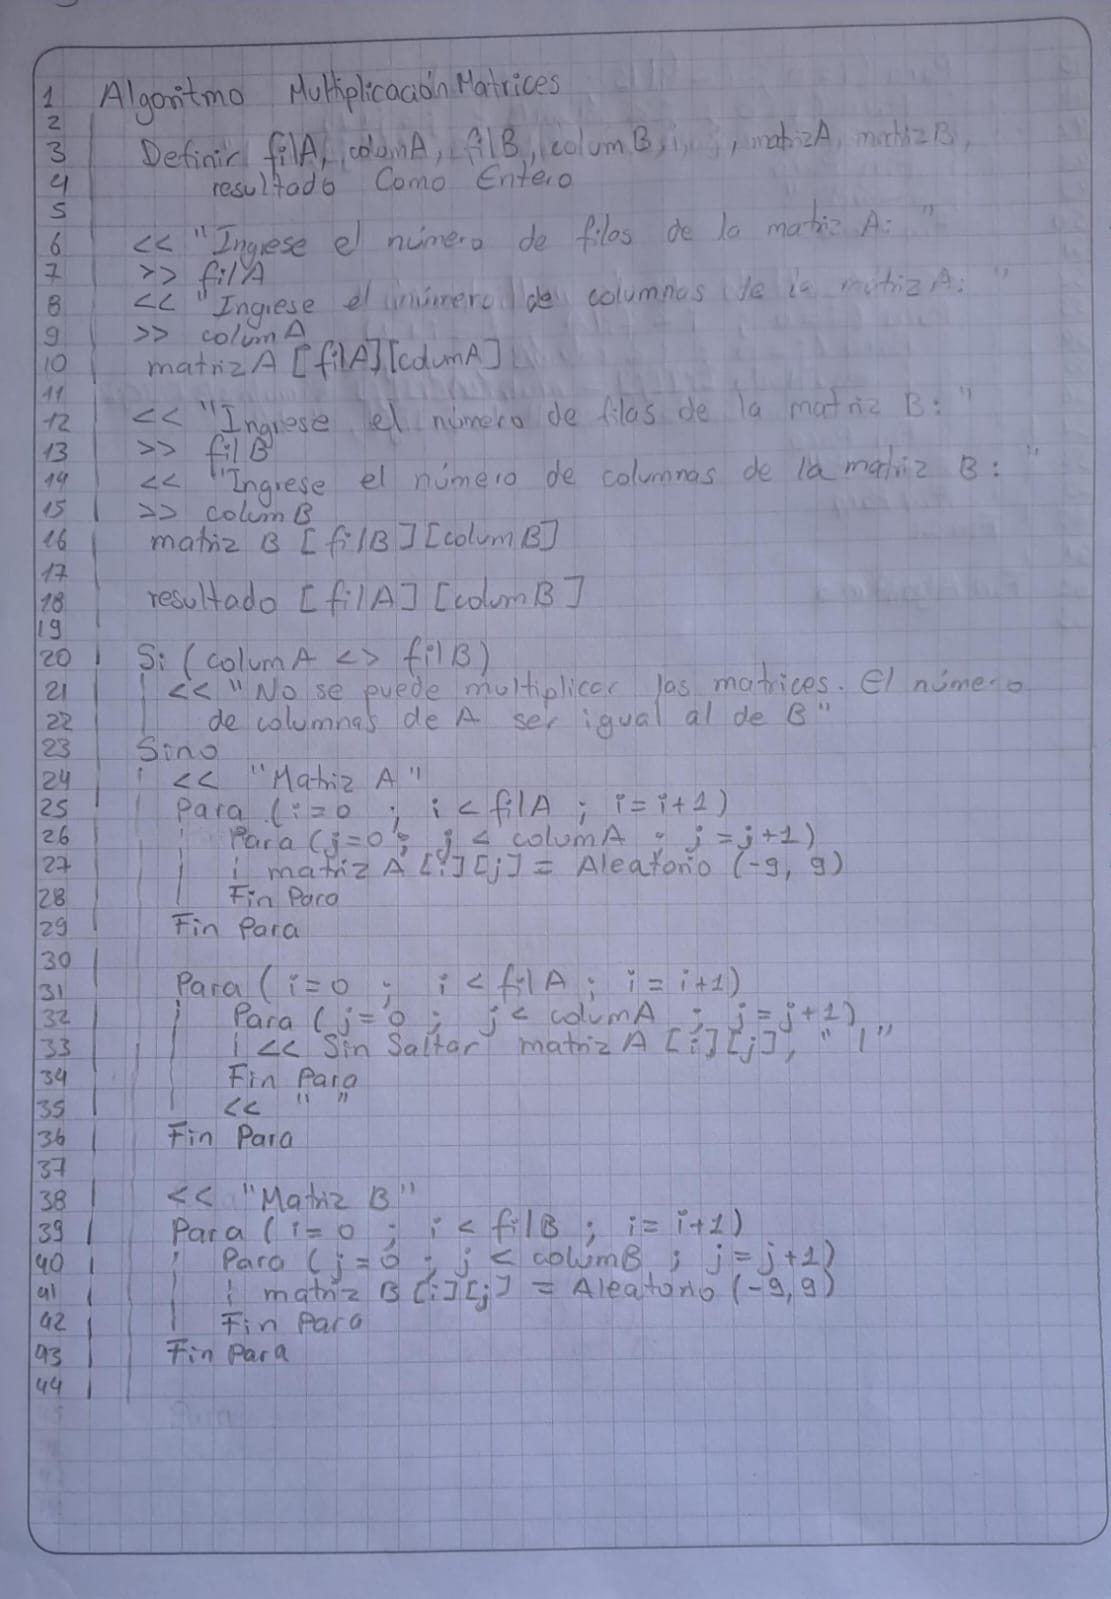 1 Algoritmo MultiplicaciónMatrices
2
3 Definir filA, columA, filB, columB, i, j, matrizA, matrizB,
4 resultado Como Entero
5
6 << "Ingrese el número de filas de la matriz A: "
7 >> filA
8 << "Ingrese el número de columnas de la matriz A: "
9 >> columA
10 matrizA [filA][columA]
11
12 << "Ingrese el número de filas de la matriz B: "
13 >> filB
14 << "Ingrese el número de columnas de la matriz B: "
15 >> columB
16 matriz B [filB][columB]
17
18 resultado [filA][columB]
19
20 Si (columA <> filB)
21 << "No se puede multiplicar las matrices. El número
22 de columnas de A ser igual al de B"
23 Sino
24 << "Matriz A"
25 Para (i=0 ; i < filA ; i=i+1)
26 Para (j=0 ; j < columA ; j=j+1)
27 matriz A [i][j] = Aleatorio (-9, 9)
28 Fin Para
29 Fin Para
30
31 Para (i=0 ; i < filA ; i=i+1)
32 Para (j=0 ; j < columA ; j=j+1)
33 << Sin Saltar matriz A [i][j], "|"
34 Fin Para
35 << " "
36 Fin Para
37
38 << "Matriz B"
39 Para (i=0 ; i < filB ; i=i+1)
40 Para (j=0 ; j < columB ; j=j+1)
41 matriz B [i][j] = Aleatorio (-9,9)
42 Fin Para
43 Fin Para
44